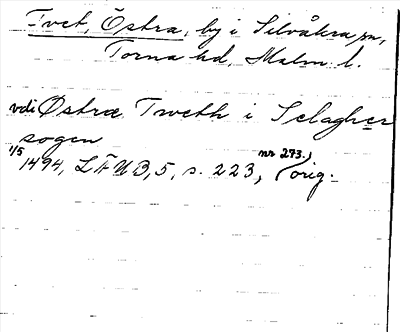 Tvet, Östra, by i Silvåkra sn,
Torna hd, Malm. l.
vdi Østræ Tweth i Selagher
sogen
1/5 1494, LÄUB, 5, s. 223, nr 273. orig.